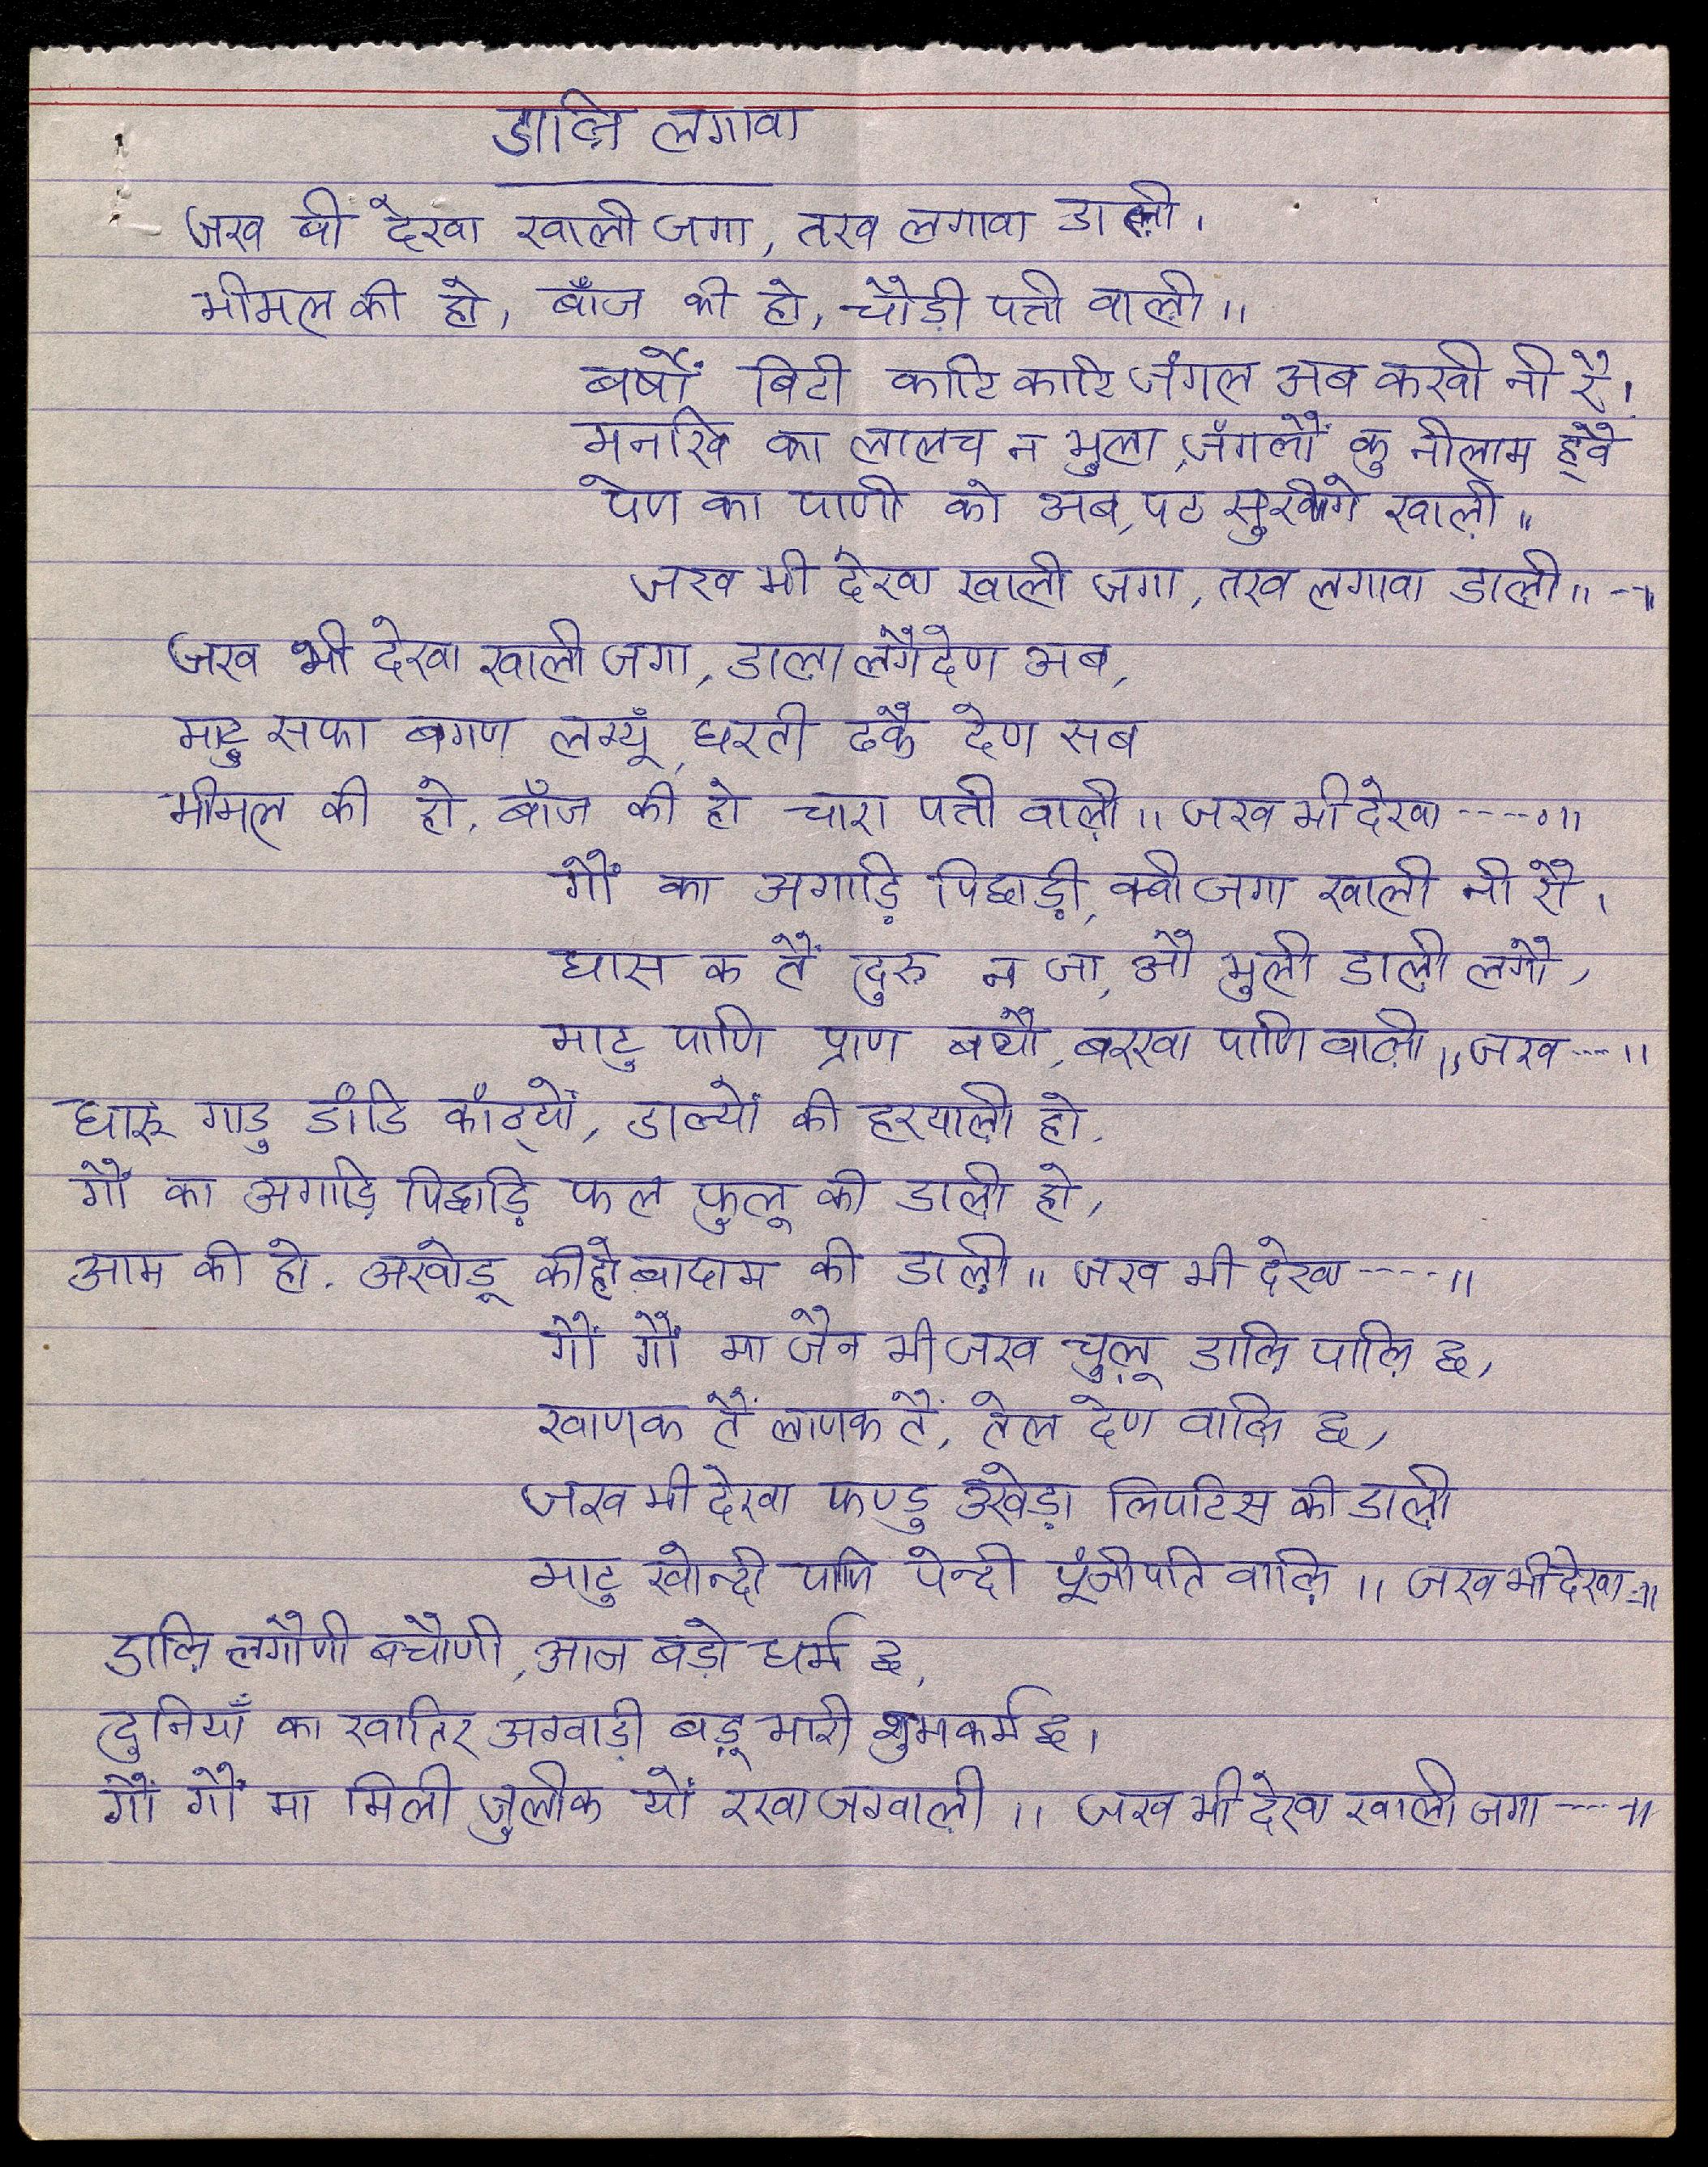 डाल़ि लगावा
जख बी देखा खाली जगा, तख लगावा डाल़ी।
भीमल की हो, बाँज की हो, चौड़ी पत्ती वाल़ी।।
बर्षों बिटी काटि काटि जंगल अब कखी नी रै।
मनखि का लालच न भुला, जंगलौं कु नीलाम ह्वे
पेण का पाणी को अब, पठ सुखीगे खाल़ी॥
जख भी देखा खाली जगा, तख लगावा डाल़ी।। --॥
जख भी देखा खाली जगा, डाला लगै देण अब,
माटु सफा बगण लग्यूँ, धरती ढकै देण सब
भीमल की हो, बाँज की हो चारा पत्ती वाल़ी।। जख भी देखा ----॥
गौं का अगाड़ि पिछाड़ी, क्वी जगा खाली नी रौ।
घास क तैं दुरु न जा, औ भुली डाल़ी लगौ,
माटु पाणि प्राण बचौ, बरखा पाणि वाल़ी।। जख ---॥
धारु गाडु डाँडि काँठ्यों, डाल्यों की हरयाल़ी हो,
गौं का अगाड़ि पिछाड़ि फल फुलू की डाल़ी हो,
आम की हो. अखोड़ू की हो, बादाम की डाल़ी॥ जख भी देखा ----॥
गौं गौं मा जैन भी जख चुल़ू डाल़ि पाल़ि छ,
खाणक तैं लाणक तैं, तेल देण वाल़ि छ,
जख भी देखा फण्डु उखेड़ा लिपटिस की डाल़ी
माटु खोन्दी पाणि पेन्दी पूंजीपति वाल़ि।। जख भी देखा -॥
डाल़ि लगौणी बचौणी, आज बड़ो धर्म छ,
दुनियाँ का खातिर अग्वाड़ी बड़ू भारी शुभकर्म छ।
गौं गौं मा मिली जुलीक यों रखा जग्वाल़ी।। जख भी देखा खाली जगा ---॥